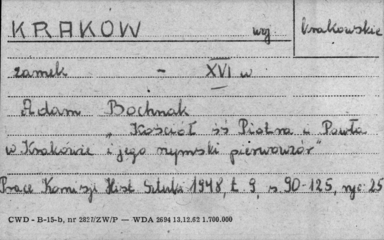 KRAKÓW woj krakowskie
zamek - XVI w
Adam Bochnak
"Kościół śś Piotra i Pawła
w Krakowie i jego rzymski pierwowzór"
Prace Komisji Hist Sztuki 1948, t. 9, s. 90-125, ryc. 25
CWD - B-15-b, nr 2827/ZW/P — WDA 2694 13.12.62 1.700.000